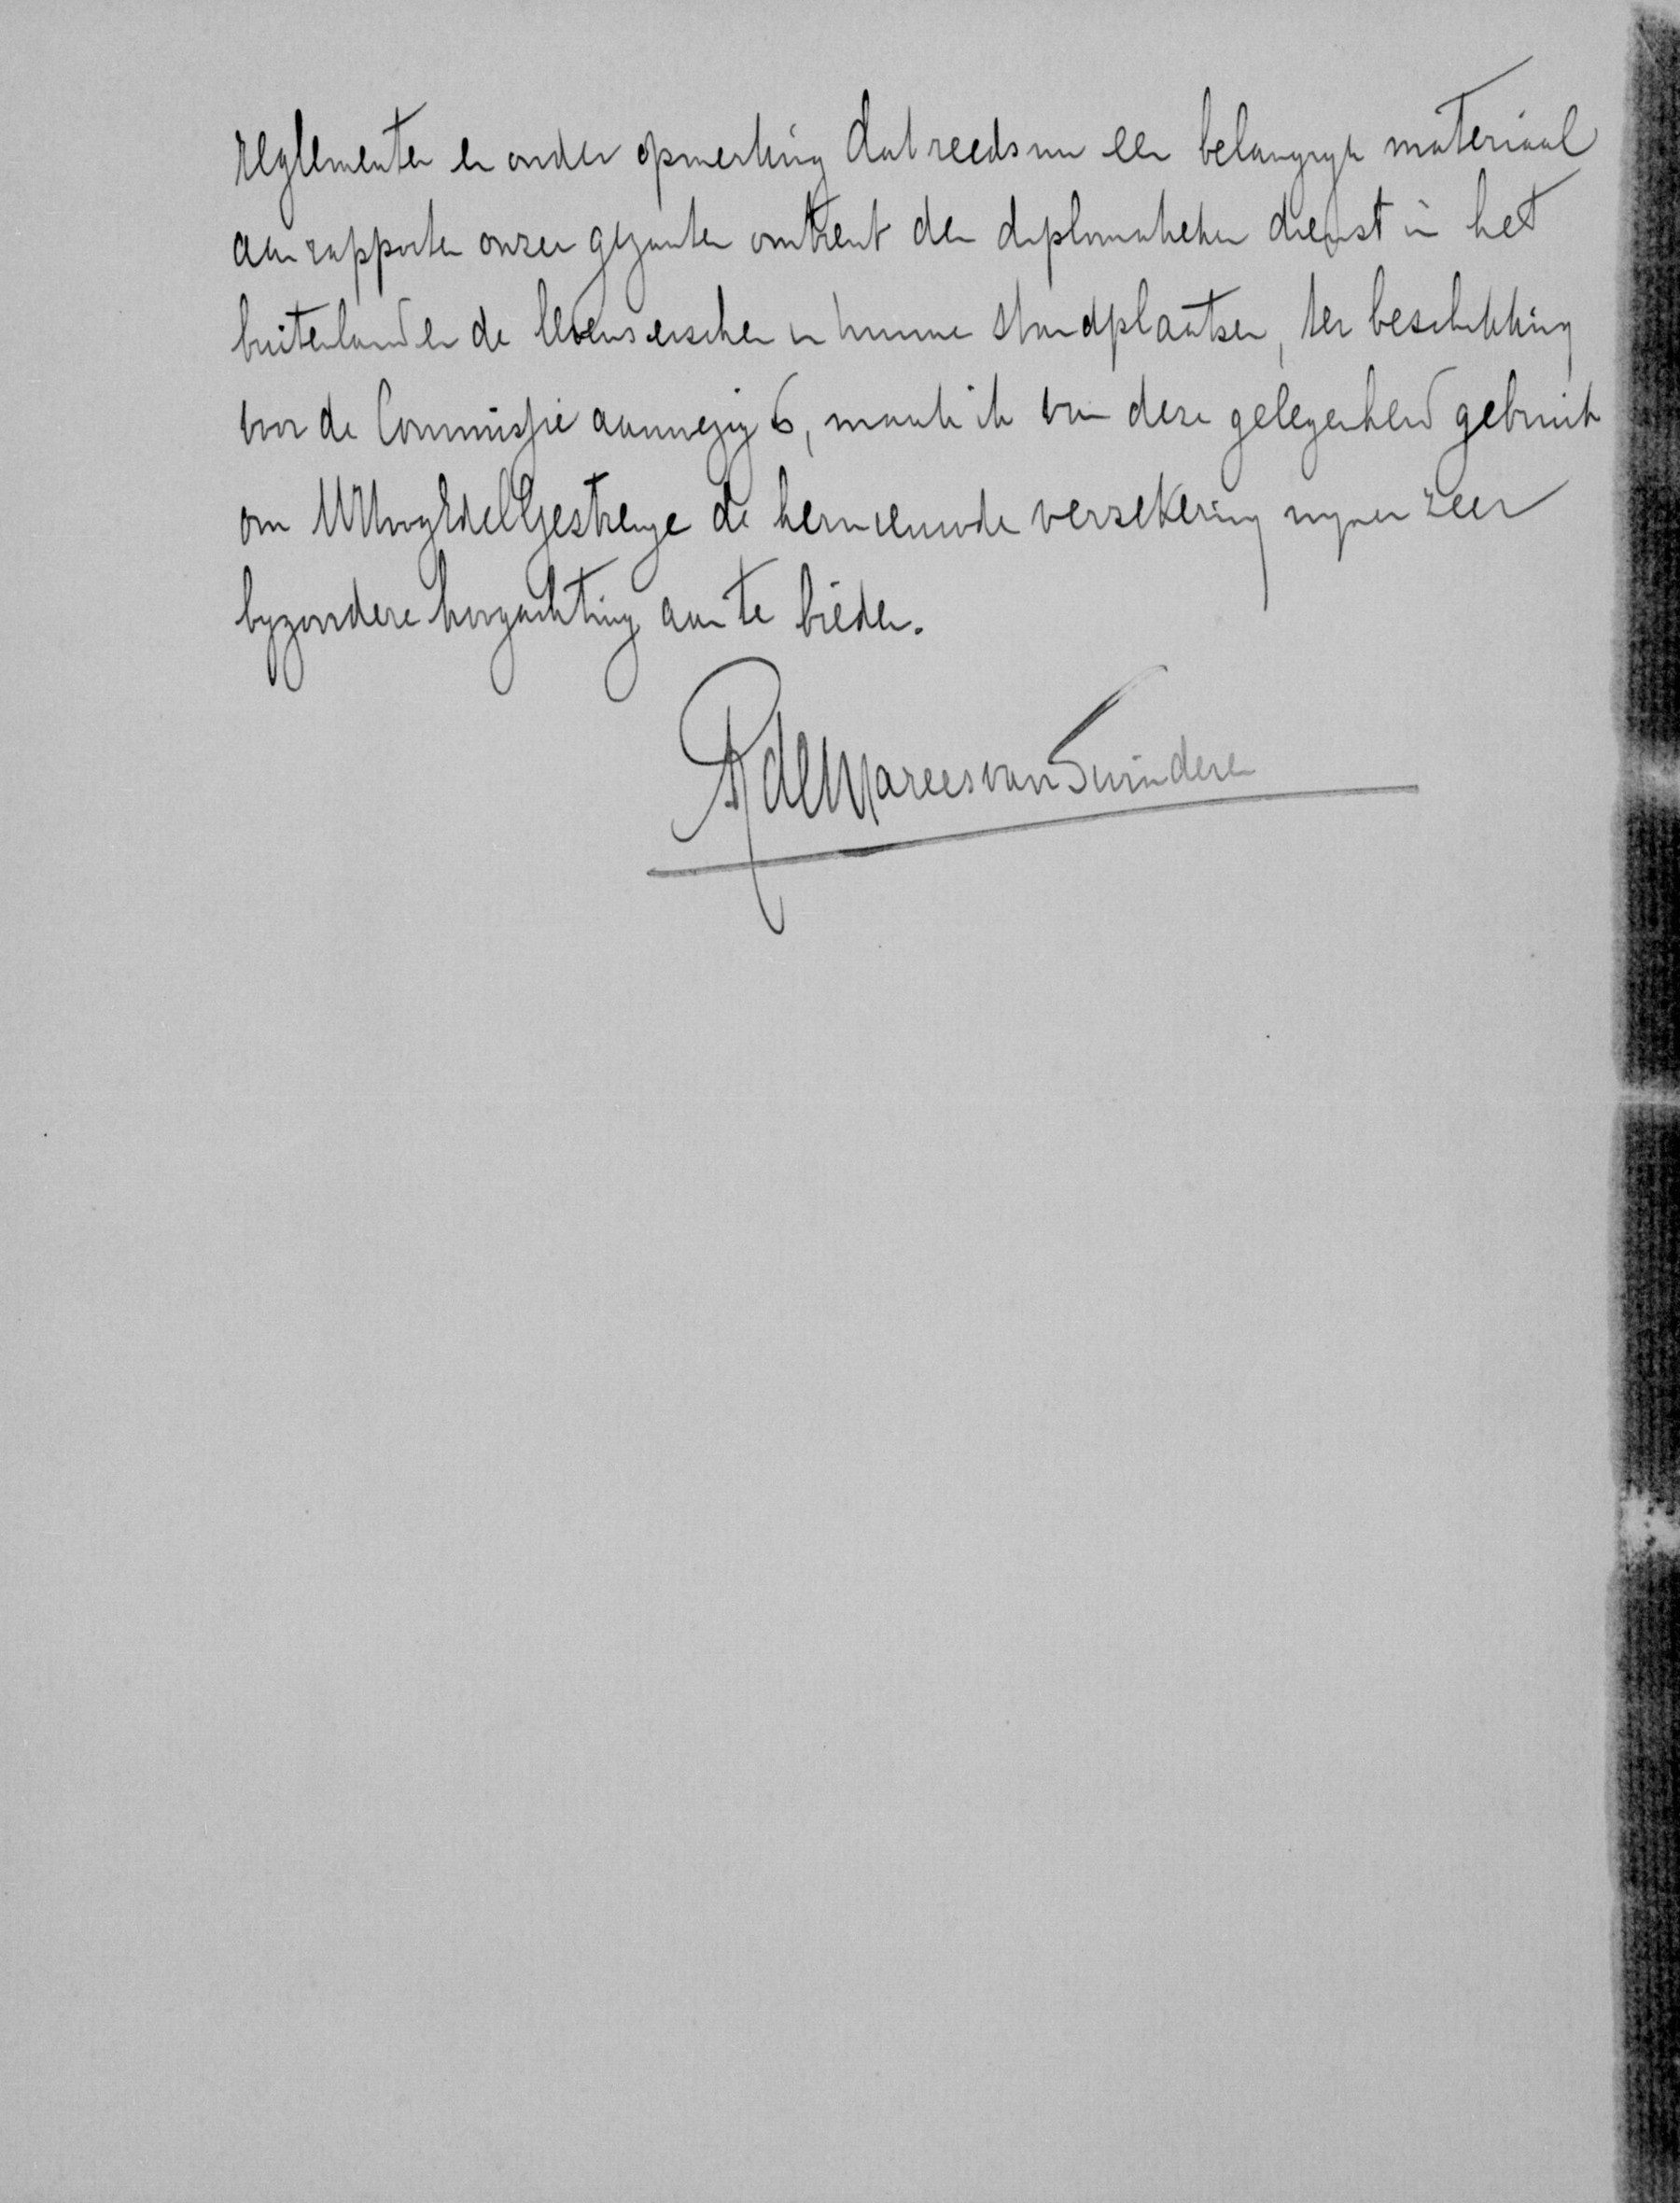 reglementen en onder opmerking dat reeds nu een belangrijk materiaal
aan rapporten onzer gezanten omtrent den diplomatieken dienst in het
buitenland en de levenseischen in hunne standplaatsen, ter beschikking
voor de Commissie aanwezig is, maak ik van deze gelegenheid gebruik
om UHoogEdelGestrenge de hernieuwde verzekering mijner zeer
byzondere hoogachting aan te bieden.
R de Marees van Swinderen